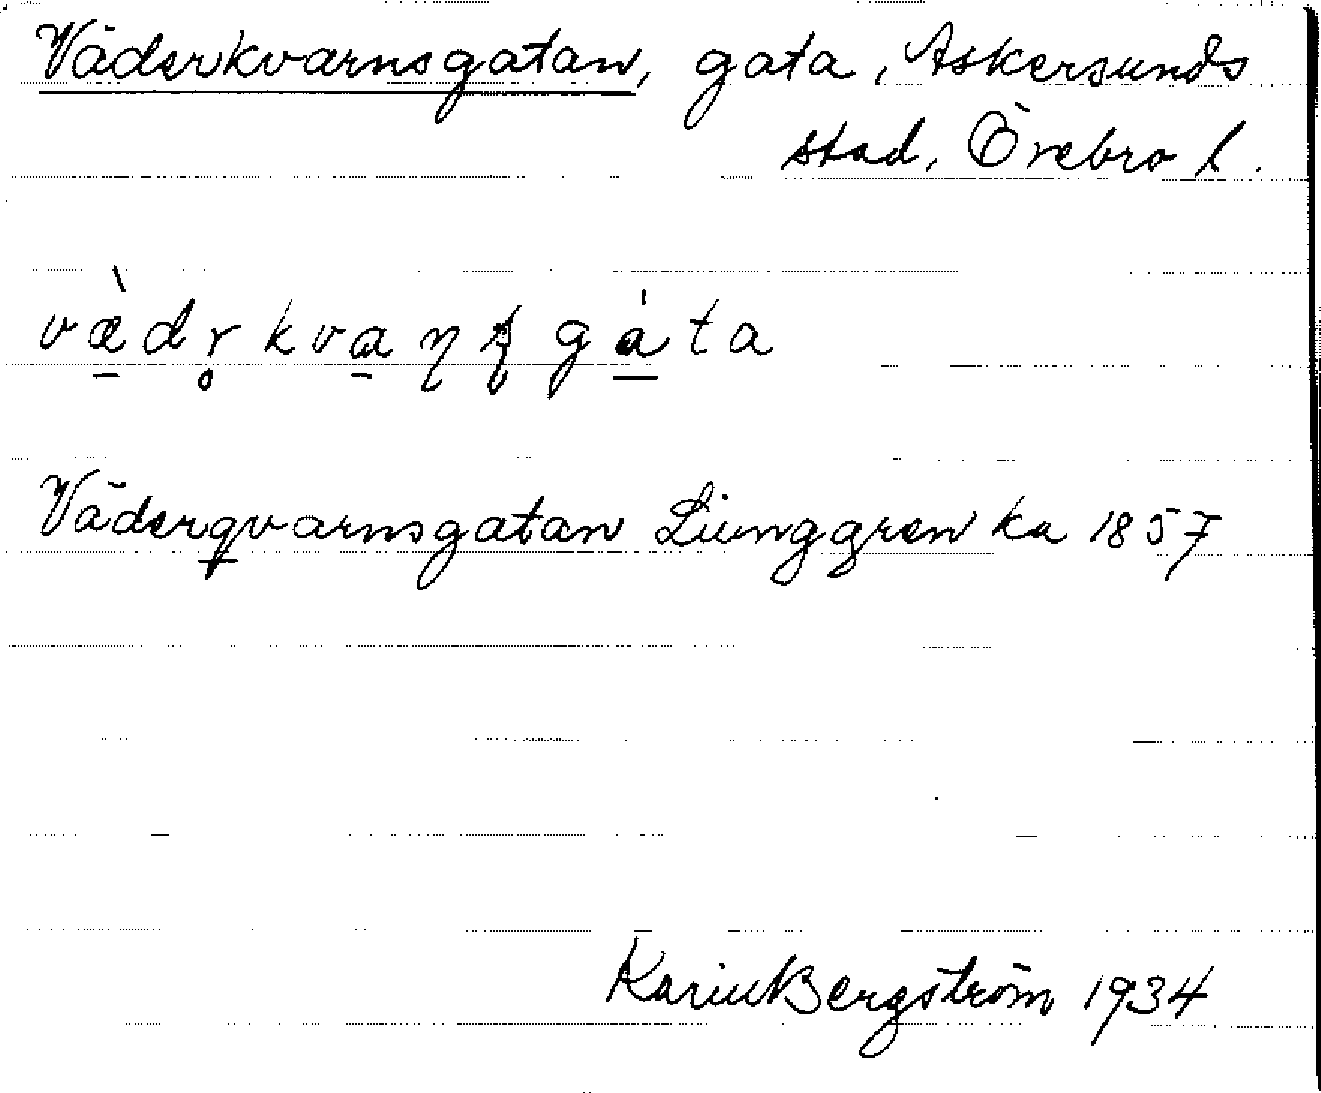 Väderkvarnsgatan, gata, Askersunds
stad, Örebro l.
væ̠̀dr̥kva̠ɳʂgá̠ta
Väderqvarnsgatan Liunggren ka 1857
Karin Bergström 1934